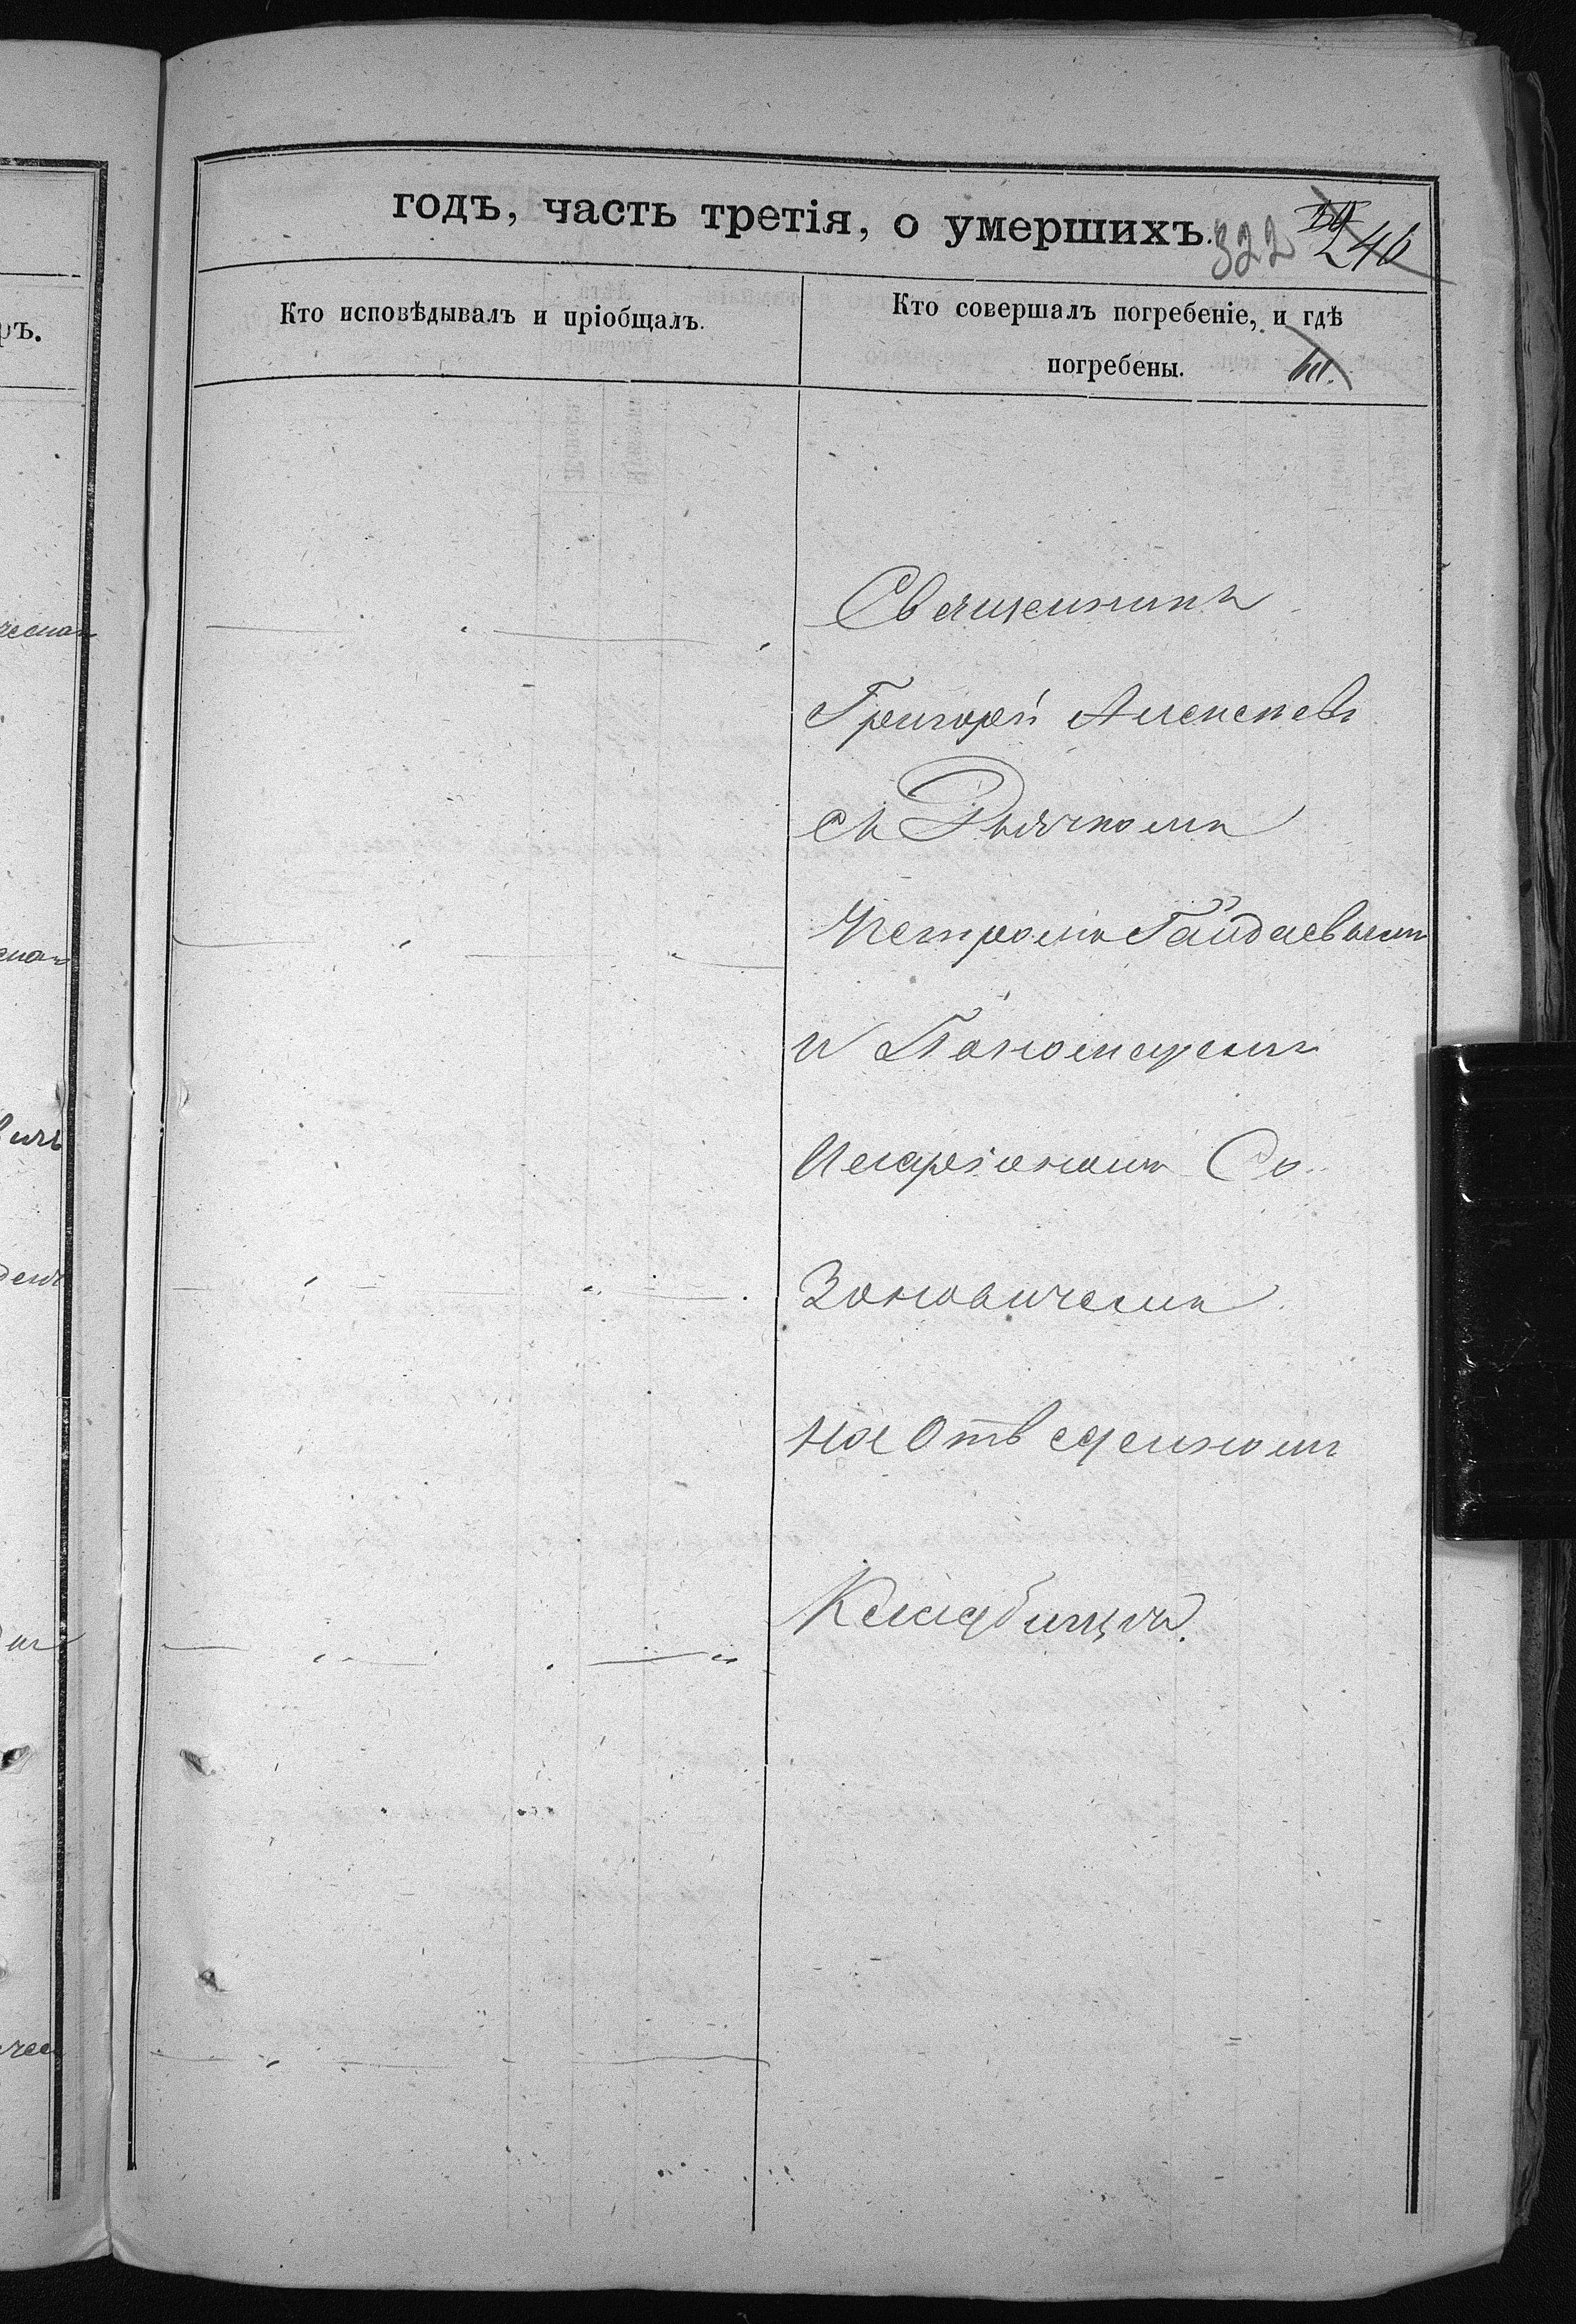 годъ, часть третія, о умершихъ.
322 246
Кто исповѣдывалъ и пріобщалъ.
Кто совершалъ погребеніе, и гдѣ
погребены.
Священникъ
Григорій Алексѣевъ
съ Дьячкомъ
Петромъ Гайдаевымъ
и Пономаремъ
Иларіономъ Со
зоновичемъ
на Отведенномъ
Кладбищѣ.